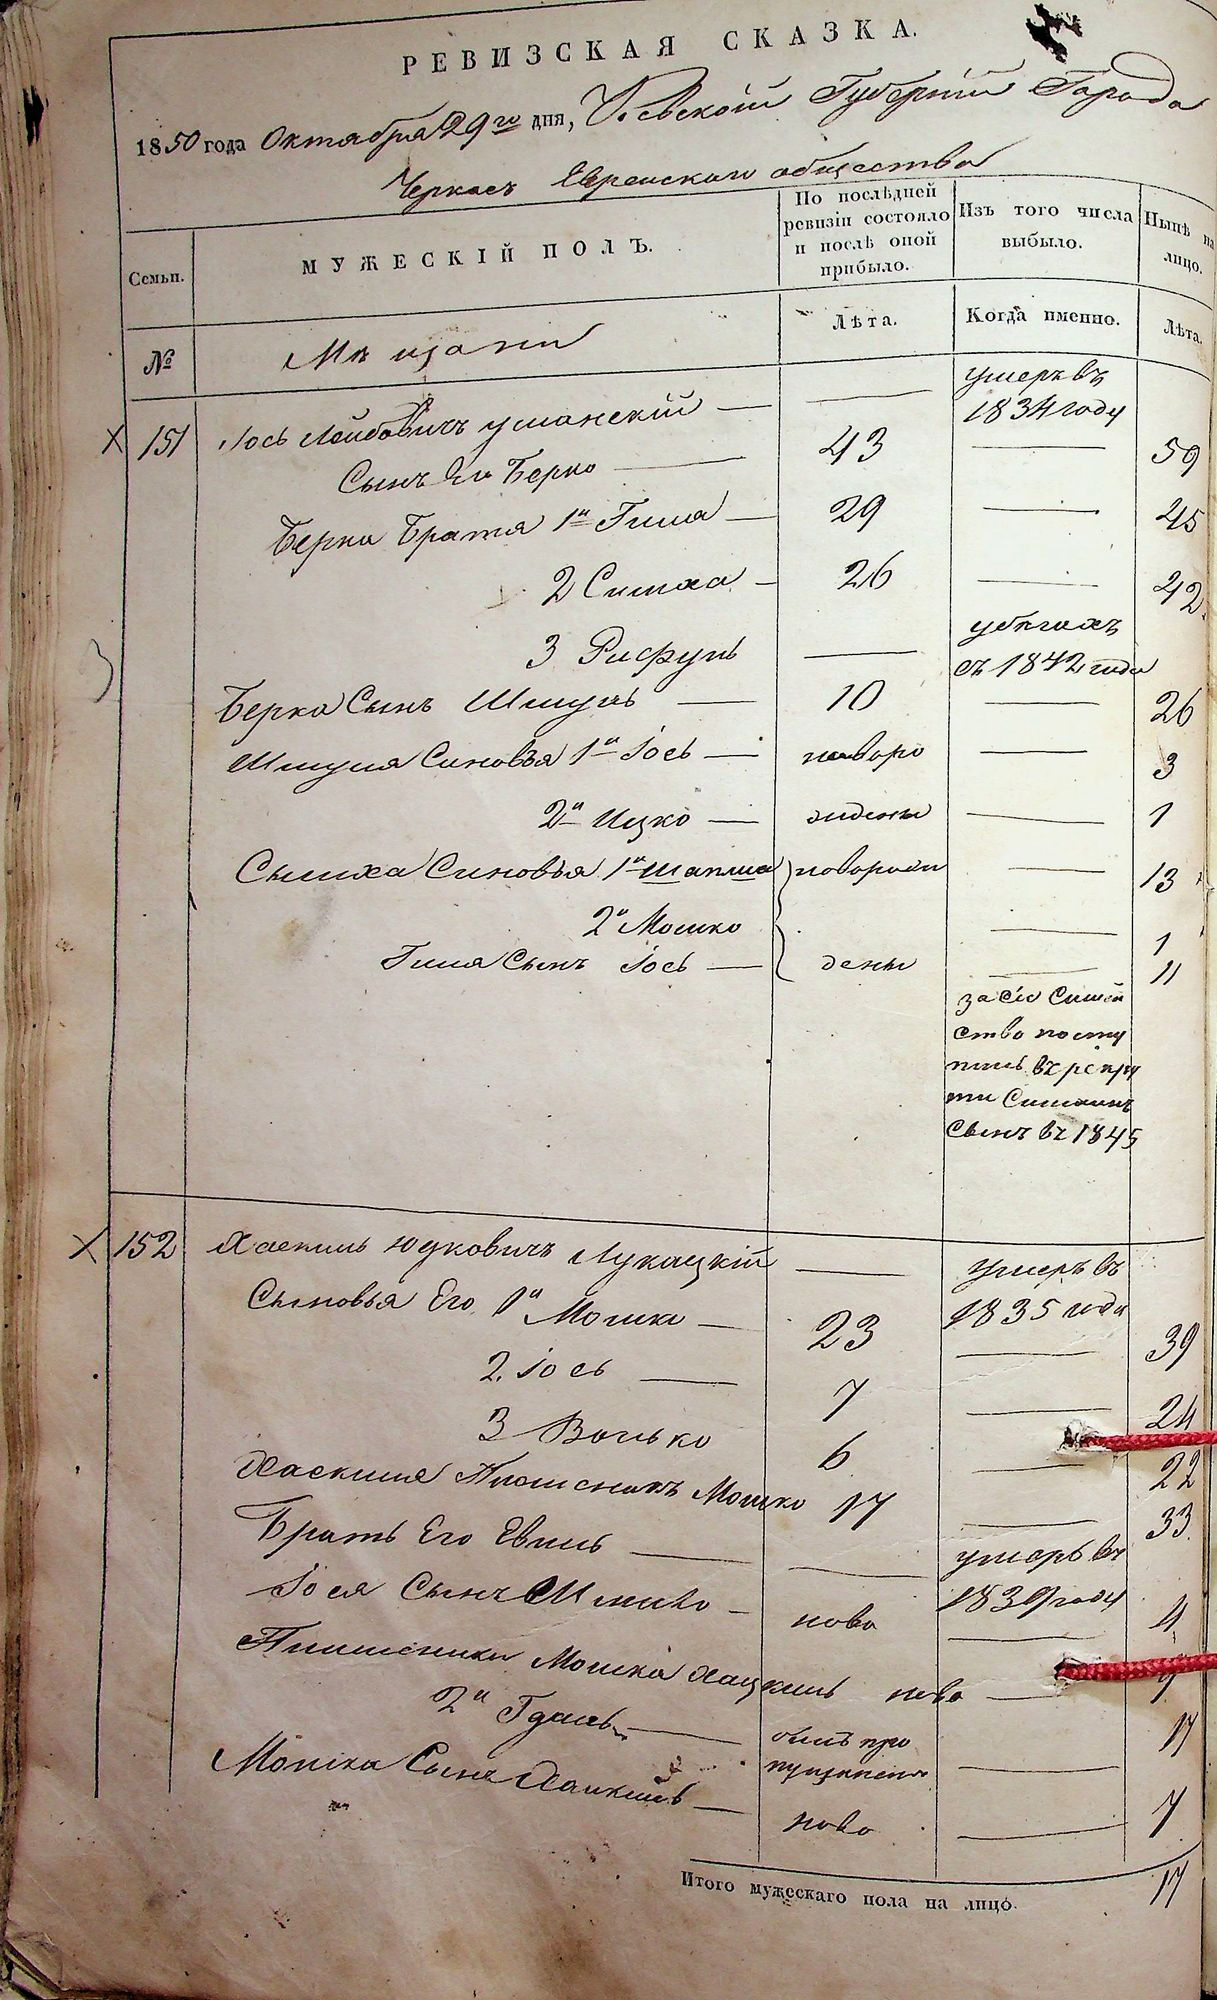 РЕВИЗСКАЯ СКАЗКА.
1850 года Октября 29го дня, Кіевской Губерніи Города
Черкасъ Еврейскаго общества
Семьи.
МУЖЕСКІЙ ПОЛЪ.
По послѣдней ревизіи состояло и послѣ оной прибыло.
Изъ того числа выбыло.
Нынѣ на лицо.
№
Мѣщане
Лѣта.
Когда именно.
Лѣта.
151 Іось Лейбовичъ Уманскій — — умеръ въ 1834 году
Сынъ Его Берко — 43 — 59
Берка Братя 1й Гиша — 29 — 45
2 Симха — 26 — 42
3 Рафуль — въ бѣгахъ съ 1842 года
Берка Сынъ Шмуль — 10 — 26
Шмуля Синовья 1й Іось — новоро — 3
2й Ицко — жидены — 1
Симха Синовья 1й Шапша новорож — 13
2й Мошко — 1
Сынъ Іось — дены — 11
за сіе Семей
ство посту
пилъ въ рекру
ты Симхинъ
Сынъ въ 1845
152 Хаскиль Юдковичъ Лукацкій — умеръ въ 1835 года
Сыновья Его 1й Мошко — 23 — 39
2. Іось — 7 — 24
3 Волько 6 — 22
Хаскиля Племеникъ Мошко 17 — 33
Братъ Его — — умеръ въ 1839 году
Іося Сынъ — ново — 4
Племеники Мошка Хацкиль ново —
2й — былъ про пущенъ — 17
Мошка Сынъ — ново — 7
Итого мужескаго пола на лицо. 17